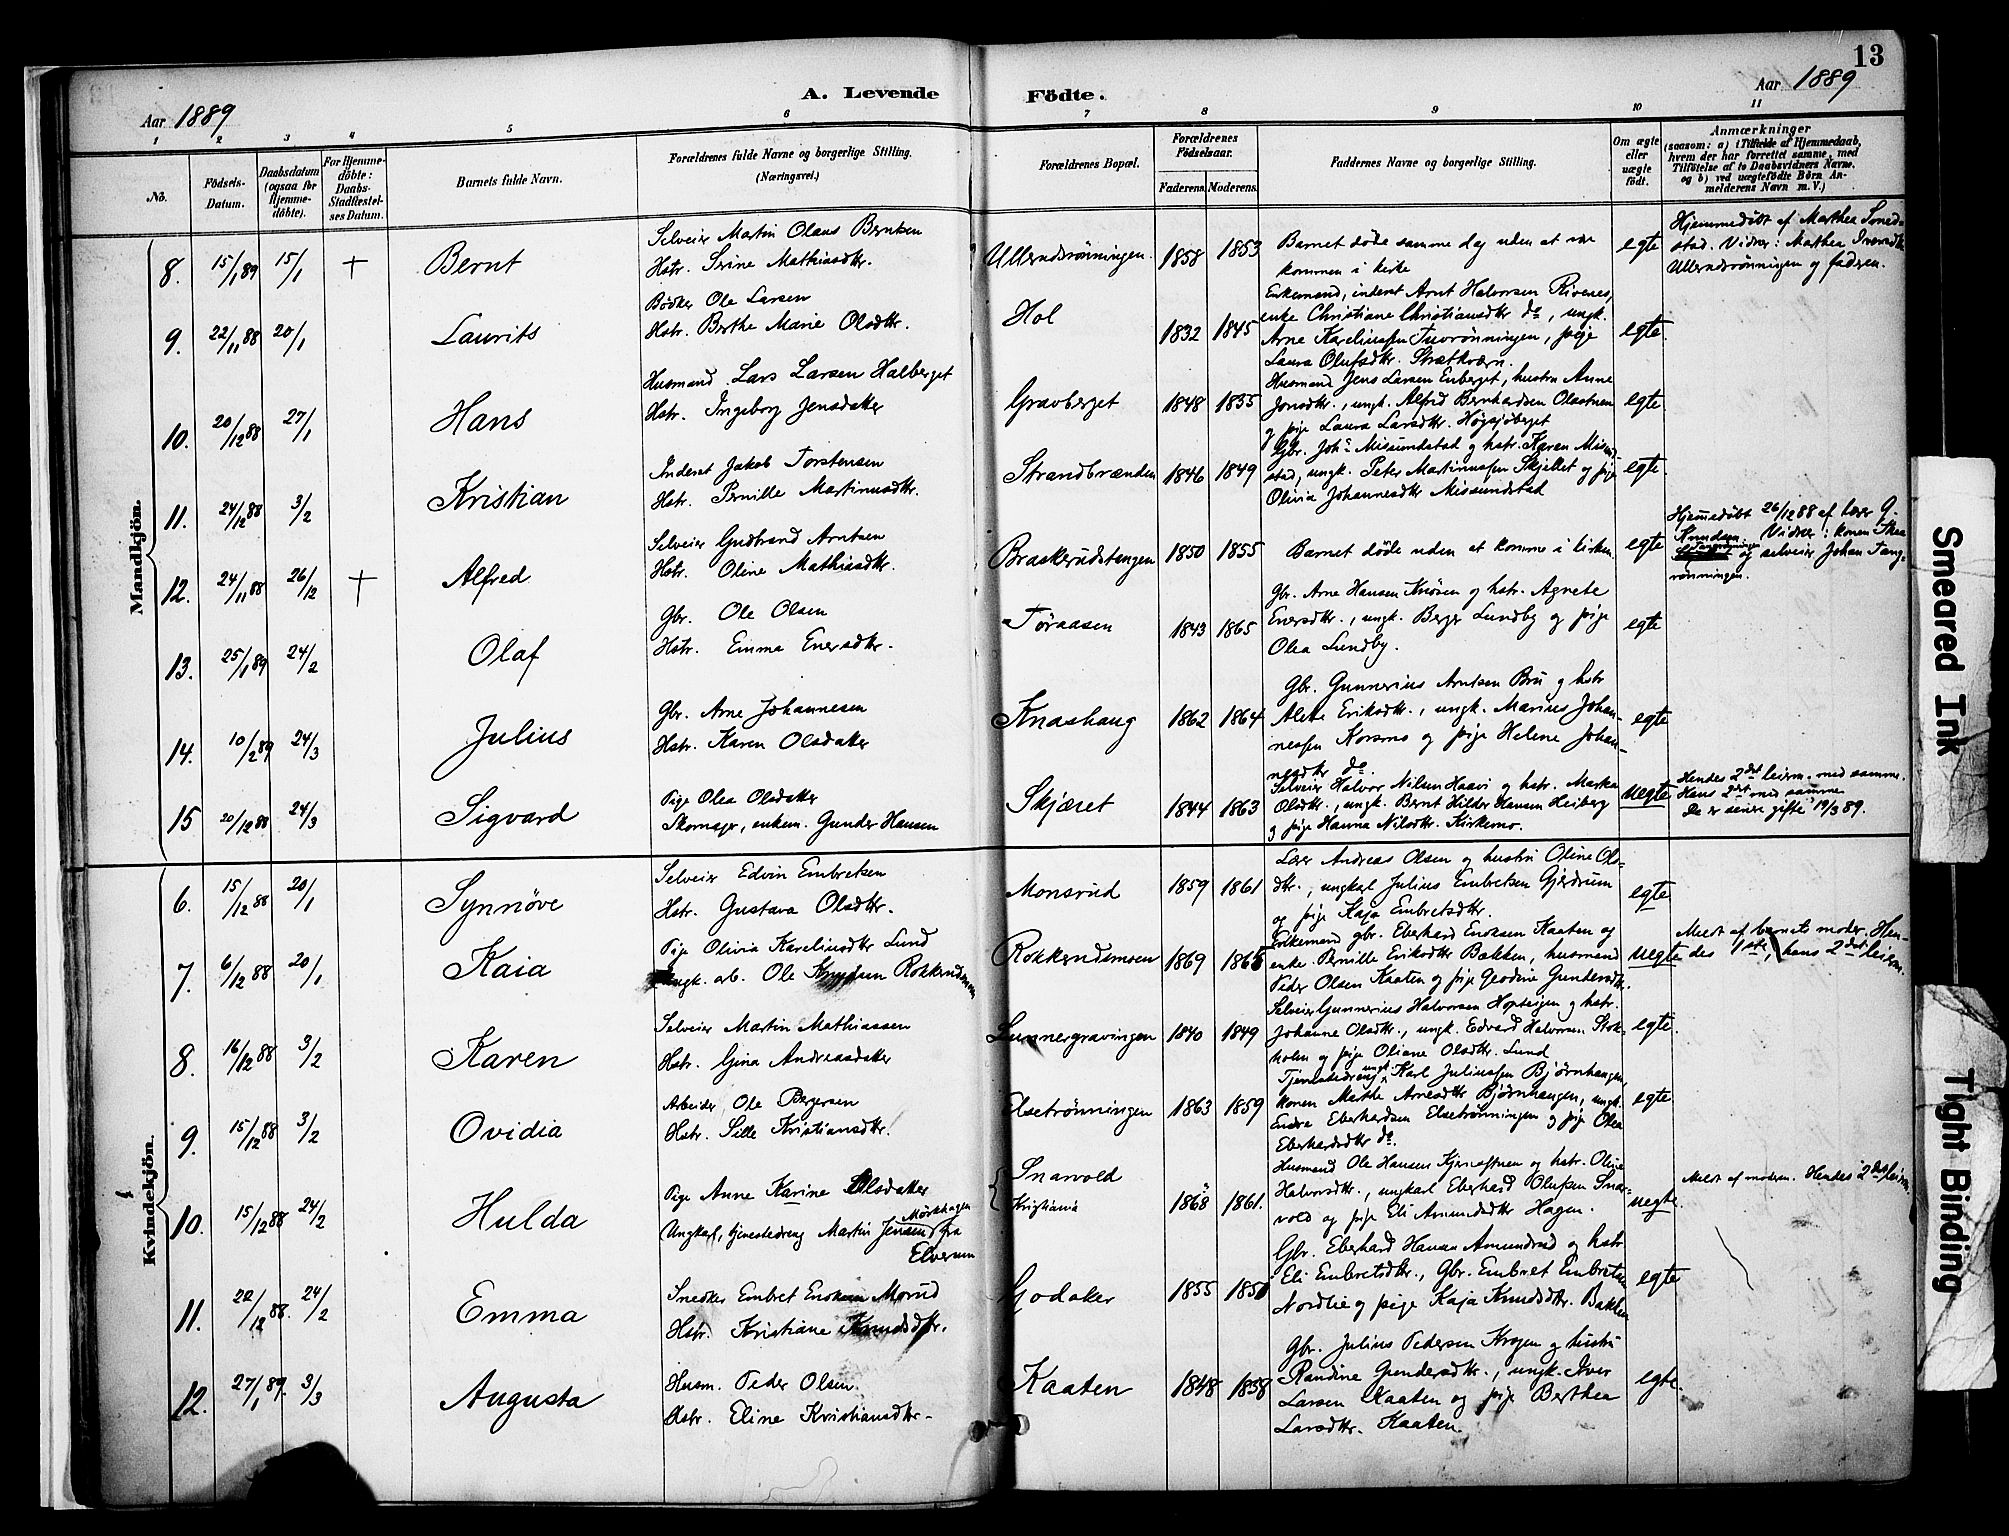 13
A. Levende Födte.
Aar 1889
Aar 1889
1 2 3 4 5 6 7 8 9 10 11
No.
Födsels-Datum.
Daabsdatum (ogsaa for Hjemme-döbte).
For Hjemme-döbte: Daabs-Stadfæstel-ses Datum.
Barnets fulde Navn.
Forældrenes fulde Navne og borgerlige Stilling.
(Næringsvei.)
Forældrenes Bopæl.
Forældrenes Födselsaar.
Faderens. Moderens.
Faddernes Navne og borgerlige Stilling.
Om ægte eller uægte født.
Anmærkninger
(saasom: a) i Tilfælde af Hjemmedaab,
hvem der har forrettet samme, med
Tilföielse af to Daabsvidners Navne,
og b) ved uægtefödte Börn An-
melderens Navn m. V.)
Mandkjön.
8. 15/1 89 15/1 + Bernt
Selveier Martin Olaus Berntsen
Hstr. Serine Mathiasdtr.
Ullerudsrønningen. 1858 1853
Barnet døde samme dag uden at være
kommen i kirke
egte
Hjemmedøbt af Marthea
stad. Vidner: Mathea Iversdtr
Ullerudsrønningen og faderen.
9. 22/11 88 20/1 Laurits
Bødker Ole Larsen
Hstr. Berthe Marie Olsdtr.
Hol 1832 1845
Enkemand, inderst Arnt Halvorsen Rivenes,
enke Christiane Christiansdtr do, ungk.
Arne Karelinssen Tuvrønningen, pige
Laura Olufsdtr. Strætkværn.
egte.
10. 20/12 88 27/1 Hans
Husmand Lars Larsen Halberget
Hstr. Ingeborg Jensdatter
Gravberget 1848 1855
Husmand Jens Larsen Enberget, hustru Anne
Jonsdtr., ungk. Alfred Bernhardsen Olastuen
og pige Laura Larsdtr. Høgsjøberget
egte.
11. 24/12 88 3/2 Kristian
Inderst Jakob Torstensen
Hstr. Pernille Martinusdtr.
Strandbrænden 1846 1849
Gbr. Johs Missundstad og hstr. Karen Missund-
stad, ungk. Peter Martinussen Skjellet og pige
Olivia Johannesdtr Missundstad
egte.
12. 24/11 88 26/12 + Alfred
Selveier Gudbrand Arntsen
Hstr. Oline Mathiasdtr.
Braskerudstangen 1850 1855
Barnet døde uden at komme i kirken.
egte
Hjemmedøbt 26/12 88 af lærer G.
Knudsen. Vidner: konen Thea
og selveier Johan Tang-
rønningen.
13. 25/1 89 24/2 Olaf
Gbr. Ole Olsen
Hstr. Emma Enersdtr.
Tøraasen 1843 1865
Gbr. Arne Hansen Knøsen og hstr. Agnete
Enersdtr., ungk. Berger Lundby og pige
Olea Lundby.
egte
14. 10/2 89 24/3 Julius
Gbr. Arne Johannesen
Hstr. Karen Olsdatter
Knashaug 1862 1864
Gbr. Gunnerius Arntsen Bru og hstr
Alette Eriksdtr., ungk. Marius Johan-
nessen Korsmo og pige Helene Johan-
nesdtr do.
egte
15 20/12 88 24/3 Sigvard
Pige Olea Olsdatter
Skomager, enkem. Gunder Hansen
Skjæret 1844 1863
Selveier Halvor Nilsen Haavi og hstr. Marka
Olsdtr., ungk. Bernt Hilder Hansen Heiberg
og pige Hanna Nilsdtr. Kirkemo.
uegte
Hendes 2det leierm. med samme.
Hans 2det med samme
De er senere gifte 19/3 89.
Kvindekjön.
6. 15/12 88 20/1 Synnöve
Selveier Edvin Embretsen
Hstr. Gustava Olsdtr.
Monsrud 1859 1861
Lærer Andreas Olsen og hustru Oline Ols-
dtr., ungkarl Julius Embretsen Gjerdrum
og pige Kaja Embretsdtr.
egte
7. 6/12 88 20/1 Kaia
Pige Olivia Karelinsdtr Lund
ungk. arb. Ole Knudsen Rokkerudsmoen
Rokkerudsmoen 1869 1865
Enkemand gbr. Eberhard Enoksen Kaaten og
enke Pernille Eriksdtr Bakken, husmand
Peder Olsen Kaaten og pige Geodine Gundersdtr.
uegte
Meldt af barnets moder. Hen-
des 1ste, hans 2det leierm.
8. 16/12 88 3/2 Karen
Selveier Martin Mathiassen
Hstr. Gina Andreasdatter
Sunnergravingen 1840 1849
Selveier Gunnerius Halvorsen Hopteigen og hstr.
Johanne Olsdtr., ungk. Edvard Halvorsen Stok-
holen og pige Oliane Olsdtr. Lund
egte.
9. 15/12 88 3/2 Ovidia
Arbeider Ole Bergersen
Hstr. Sille Kristiansdtr.
Elsetrønningen 1863 1859
Tjenestedreng ungk. Karl Juliussen Bjørnhaugen,
konen Mathe Arnesdtr Bjørnhaugen, ungk.
Endre Eberhardsen Elsetrønningen og pige Olea
Eberhardsdtr do.
egte
10. 15/12 88 24/2 Hulda
Pige Anne Karine Olsdatter
Ungkarl, tjenestedreng Martin Jensen Mørkhagen fra
Elverum
Snarvold
Kristiania
1868 1861.
Husmand Ole Hansen Kjernsstuen og hstr. Oline
Halvorsdtr., ungkarl Eberhard Olufsen Snar-
vold og pige Eli Amundsdtr Hagen.
uegte.
Meldt af modern. Hendes 2det leierm.
11. 22/12 88. 24/2 Emma
Snedker Embret Enoksen Morud
Hstr. Kristiane Knudsdtr.
Godaker 1855 1850
Gbr. Eberhard Hansen Amundrud og hstr
Eli Embretsdtr., Gbr. Embret Embretsen
Nordlie og pige Kaja Knudsdtr. Bakken
egte
12. 27/1 89. 3/3 Augusta
Husm. Peder Olsen.
Hstr. Eline Kristiansdtr.
Kaaten 1848 1858
Gbr. Julius Pedersen Krogen og hustru
Randine Gundersdtr., ungk. Iver
Larsen Kaaten og pige Berthea
Larsdtr. Kaaten.
egte.
Smeared Ink
Tight Binding